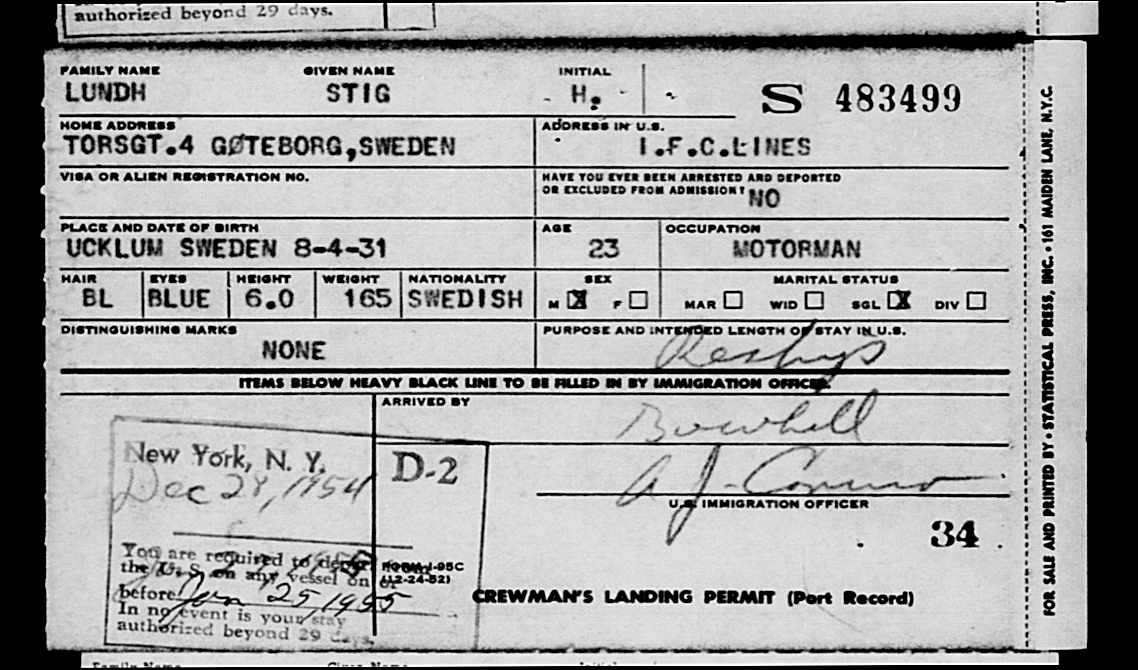 authorized beyond 29 days.
FAMILY NAME GIVEN NAME INITIAL
LUNDH STIG H. S 483499
HOME ADDRESS ADDRESS IN U.S.
TORSGT.4 GØTEBORG,SWEDEN I.F.C.LINES
VISA OR ALIEN REGISTRATION NO. HAVE YOU EVER BEEN ARRESTED AND DEPORTED
OR EXCLUDED FROM ADMISSION? NO
PLACE AND DATE OF BIRTH AGE OCCUPATION
UCKLUM SWEDEN 8-4-31 23 MOTORMAN
HAIR EYES HEIGHT WEIGHT NATIONALITY SEX MARITAL STATUS
BL BLUE 6.0 165 SWEDISH M X F MAR WID SGL X DIV
DISTINGUISHING MARKS PURPOSE AND INTENDED LENGTH OF STAY IN U.S.
NONE
ITEMS BELOW HEAVY BLACK LINE TO BE FILLED IN BY IMMIGRATION OFFICER.
ARRIVED BY
Bowhall
New York, N. Y. D-2
Dec 28, 1954
A J. Connor
U.S. IMMIGRATION OFFICER
34
You are required to depart from
the U. S. on any vessel on or
before Jan 25, 1955
In no event is your stay
authorized beyond 29 days.
FORM I-95C
(12-24-52)
CREWMAN'S LANDING PERMIT (Port Record)
FOR SALE AND PRINTED BY • STATISTICAL PRESS, INC. • 161 MAIDEN LANE, N.Y.C.
Family Name Given Name Initial